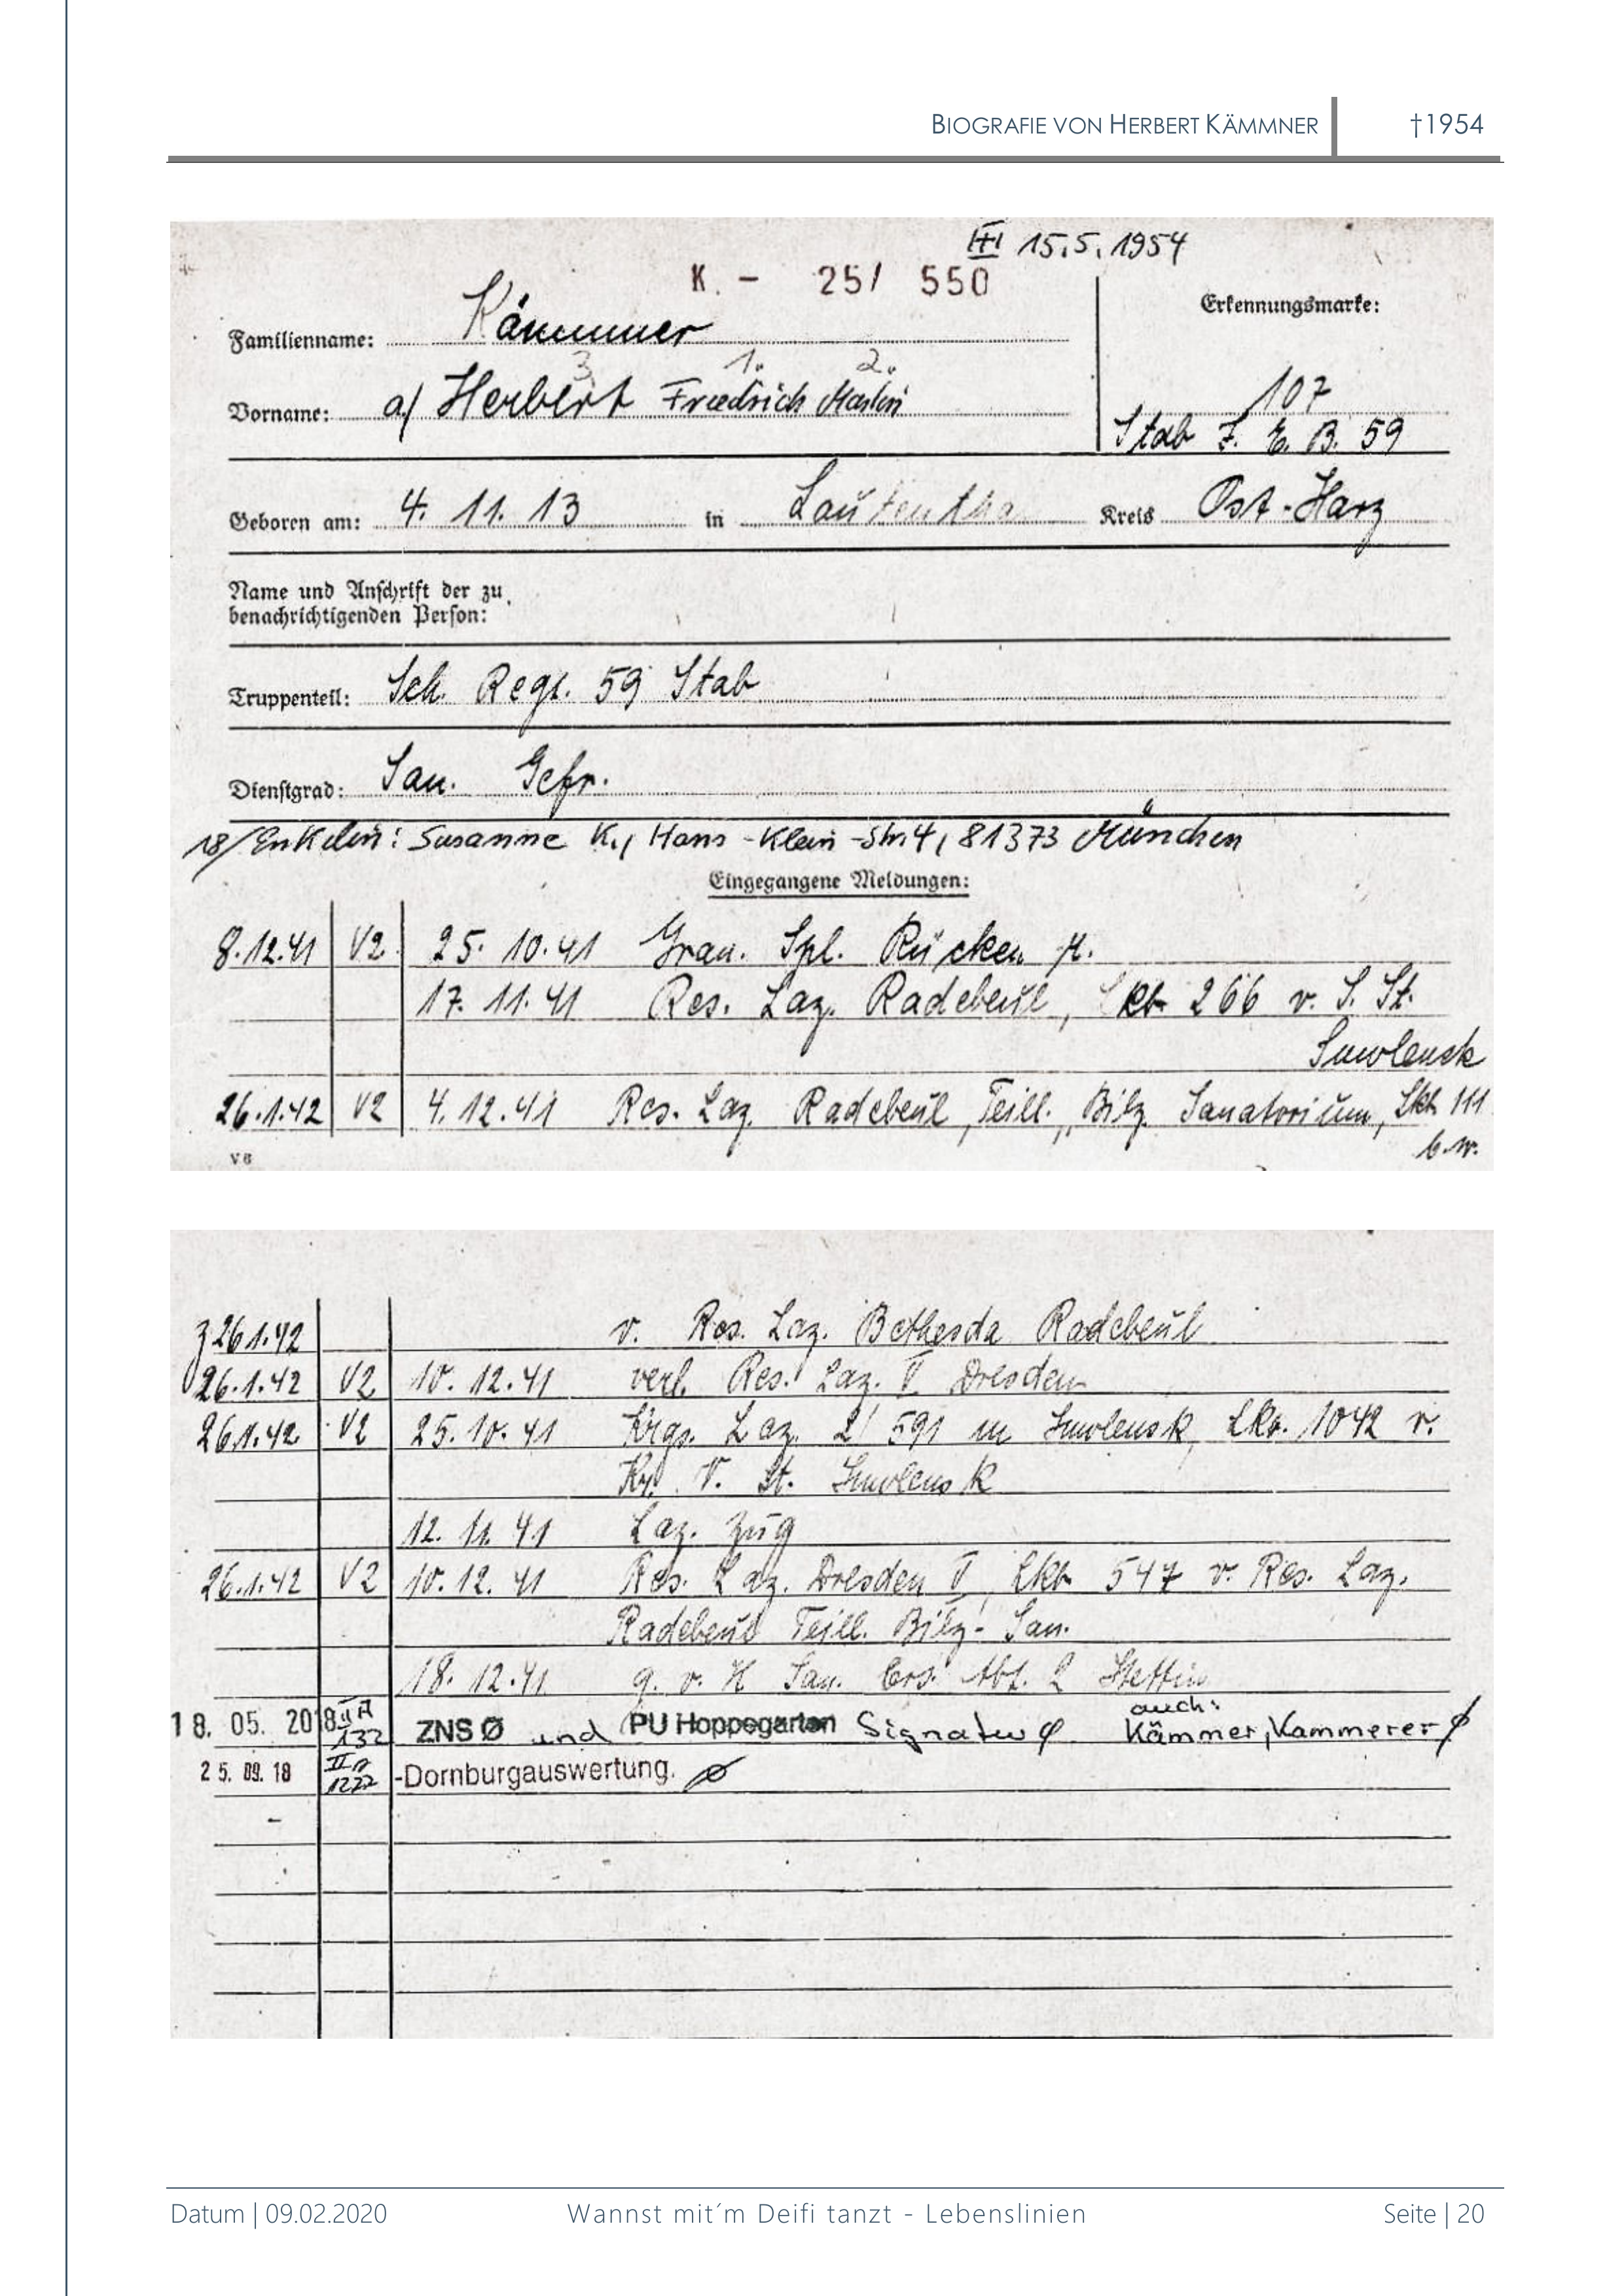 BIOGRAFIE VON HERBERT KÄMMNER †1954
15.5.1954
K. - 25/ 550
Erkennungsmarke:
Familienname: Kämmner
3. 1. 2.
Vorname: a/ Herbert Friedrich Martin
107
Stab J. E. B. 59
Geboren am: 4. 11. 13 in Lautentha Kreis Ost-Harz
Name und Anschrift der zu
benachrichtigenden Person:
Truppenteil: Sch. Regt. 59 Stab
Dienstgrad: San. Gefr.
18/Enkelin: Susanne K., Hans-Klein-Str. 4, 81373 München
Eingegangene Meldungen:
8.12.41 V2 25. 10. 41 Gran. Spl. Rücken
17. 11. 41 Res. Laz. Radebeul, Lkb 266 v. S. St.
Smolensk
26.1.42 V2 4. 12. 41 Res. Laz. Radebeul, Teill. „Bilz Sanatorium, Lkb 111
b.w.
V 6
26.1.42 v. Res. Laz. Bethesda Radebeul
26.1.42 V2 10. 12. 41 verl. Res. Laz. V Dresden
26.1.42 V2 25. 10. 41 Krgs. Laz. 2/591 in Smolensk, Lkb. 1042 v.
Kr. V. St. Smolensk
12. 11. 41 Laz. Zug
26.1.42 V2 10. 12. 41 Res. Laz. Dresden V, Lkb 547 v. Res. Laz.
Radebeul Teill. Bilz-San.
18. 12. 41 g. v. H San. Ers. Abt. 2 Stettin
auch:
18. 05. 2018 II A 132 ZNS Ø und PU Hoppegarten Signatur φ Kämmer, Kammerer φ
25. 09. 18 II A 1272 -Dornburgauswertung. Ø
Datum | 09.02.2020 Wannst mit´m Deifi tanzt - Lebenslinien Seite | 20